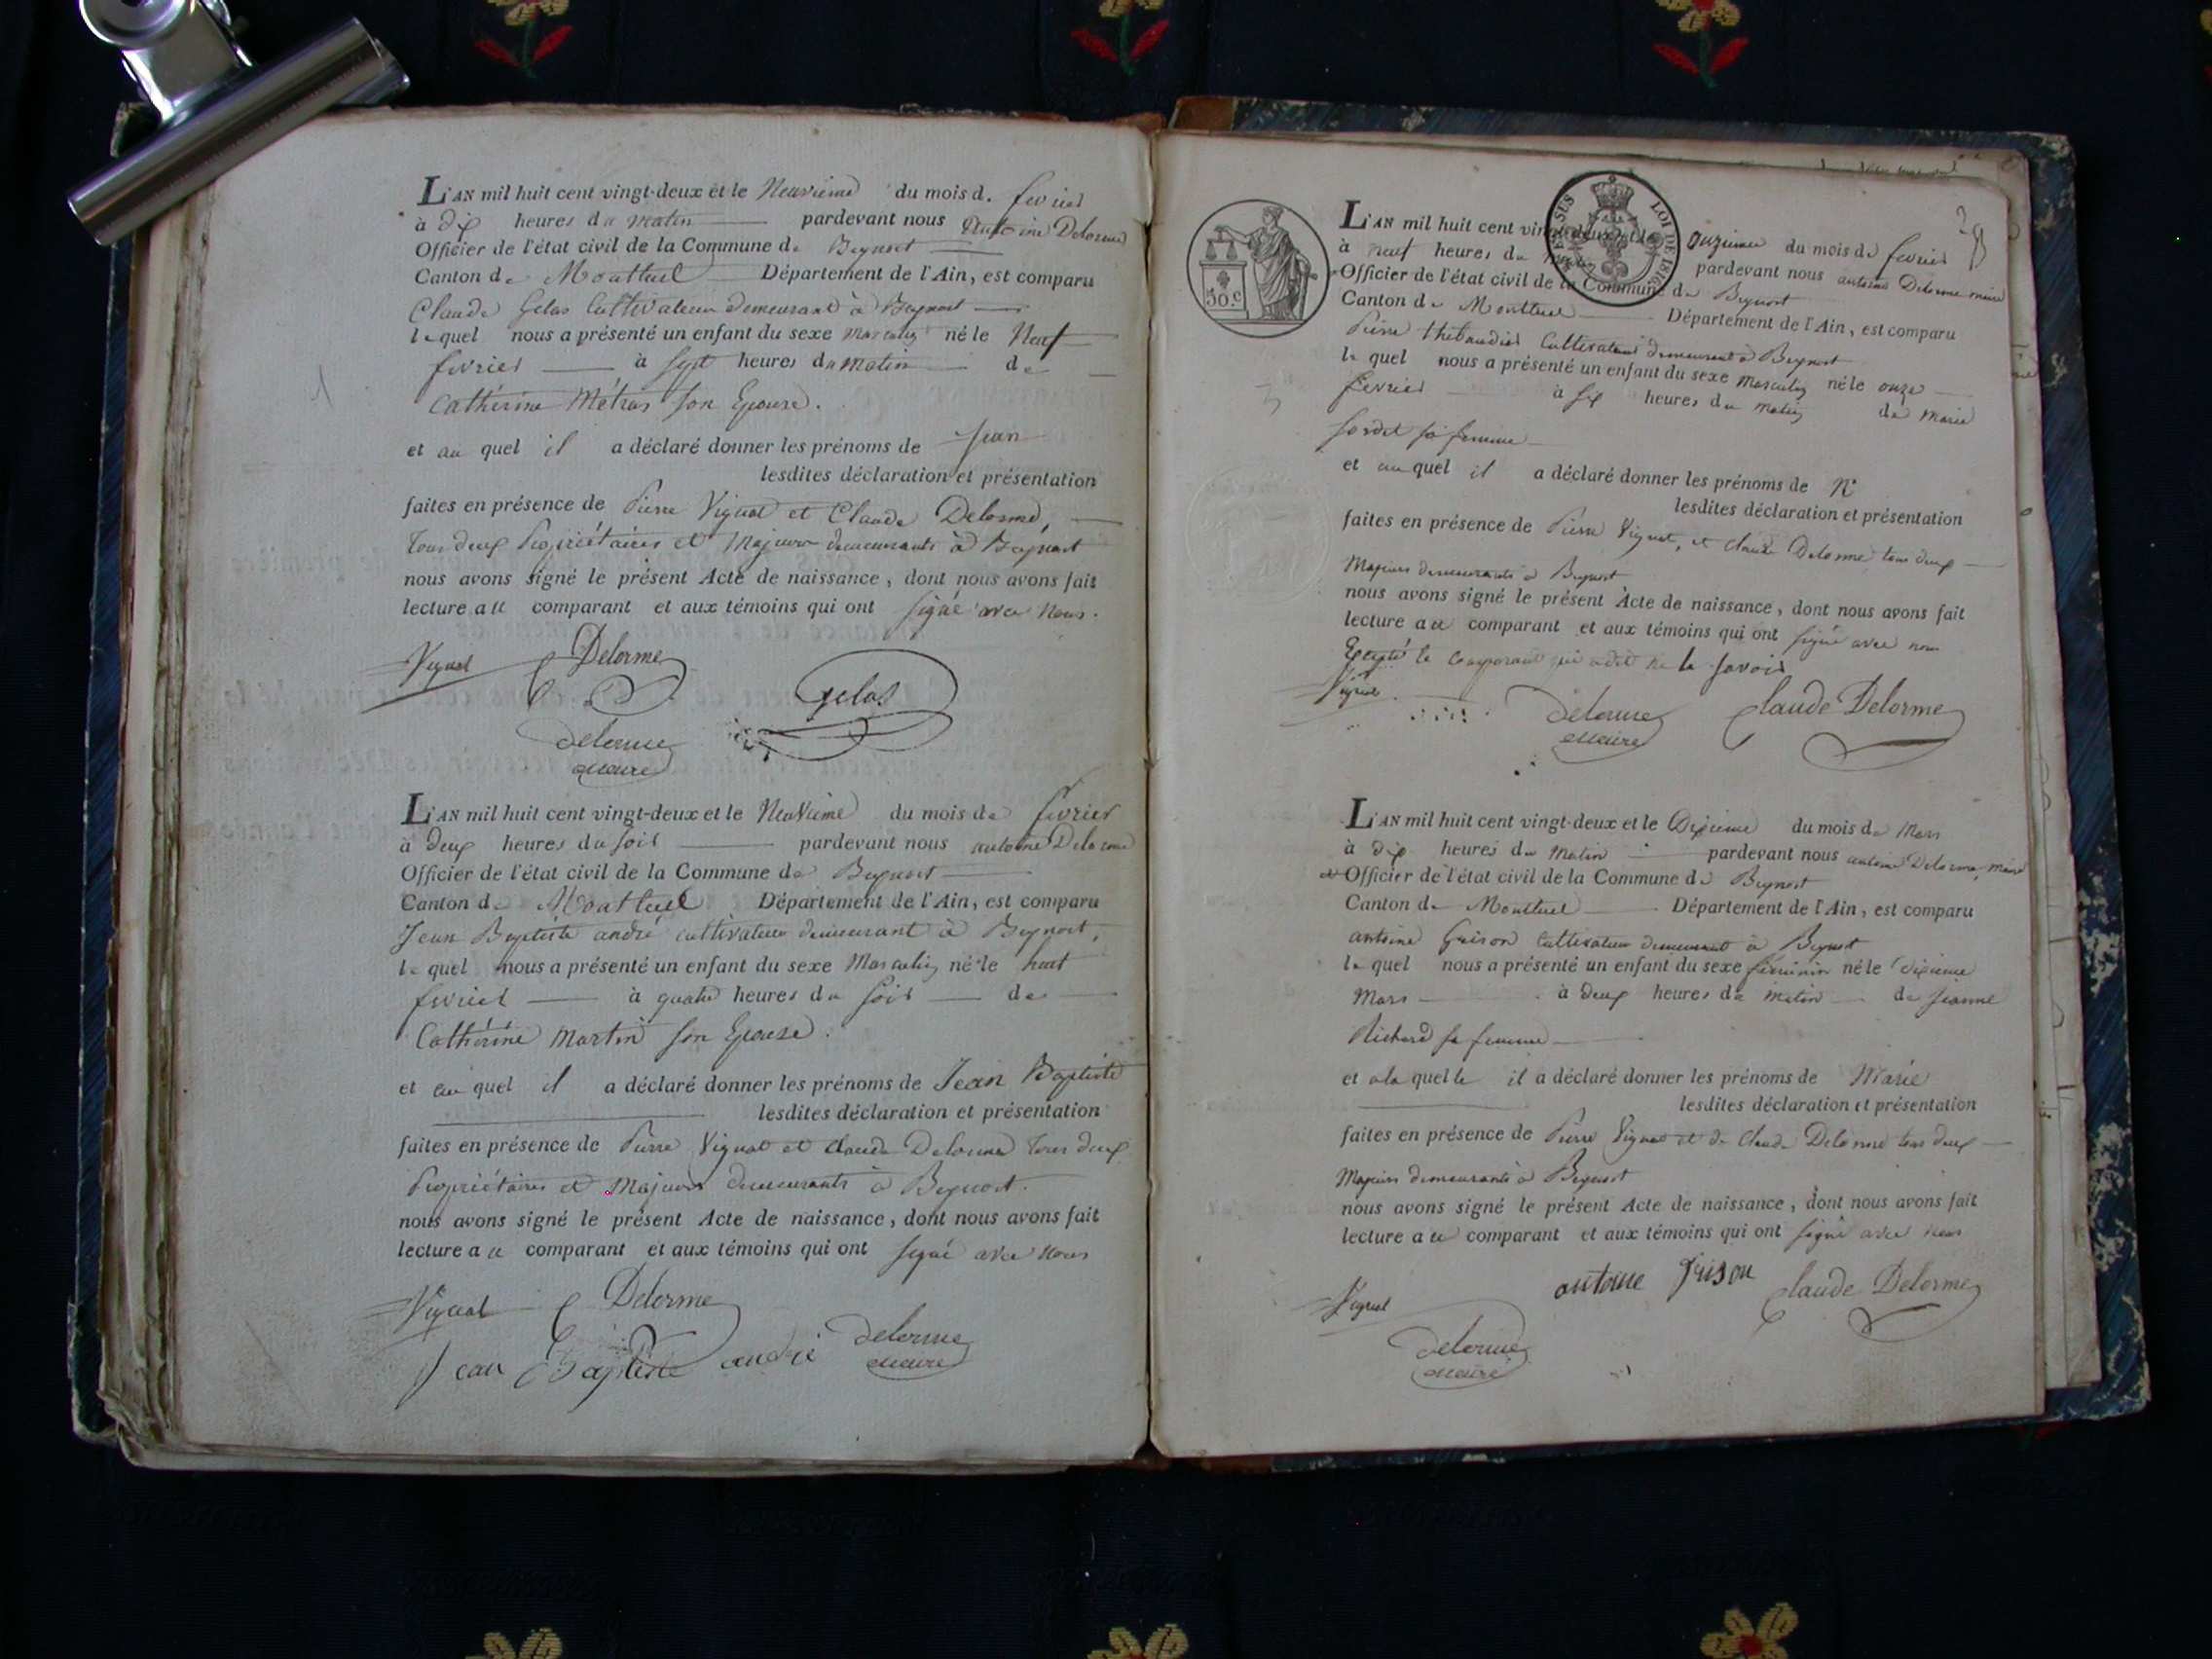 L'AN mil huit cent vingt-deux et le Neuvieme du mois de fevrier
à dix heures du matin pardevant nous Antoine Delorme
Officier de l'état civil de la Commune de Beynost
Canton de Montluel Département de l'Ain, est comparu
Claude Gelas Cultivateur demeurant à Beynost
lequel nous a présenté un enfant du sexe masculin né le Neuf
fevrier à sept heures du matin de
Catherine Métras son Epouse.
et au quel il a déclaré donner les prénoms de Jean
lesdites déclaration et présentation
faites en présence de Pierre Vignat et Claude Delorme,
tous deux Propriétaires et Majeurs demeurants à Beynost
nous avons signé le présent Acte de naissance, dont nous avons fait
lecture au comparant et aux témoins qui ont signé avec Nous.
Vignat Delorme
Gelas
Delorme
maire
L'AN mil huit cent vingt-deux et le Neuvieme du mois de fevrier
à deux heures du soir pardevant nous antoine Delorme
Officier de l'état civil de la Commune de Beynost
Canton de Montluel Département de l'Ain, est comparu
Jean Baptiste andré cultivateur demeurant à Beynost,
lequel nous a présenté un enfant du sexe Masculin né le huit
fevrier à quatre heures du soir de
Cathérine Martin son Epouse.
et au quel il a déclaré donner les prénoms de Jean Baptiste
lesdites déclaration et présentation
faites en présence de Pierre Vignat et Claude Delorme tous deux
Propriétaires et Majeurs demeurants à Beynost.
nous avons signé le présent Acte de naissance, dont nous avons fait
lecture au comparant et aux témoins qui ont signé avec nous
Vignat Delorme
Jean Baptiste andré Delorme
maire
50.c
LOI DE 1816
L'AN mil huit cent vingt-deux et le onzieme du mois de fevrier
à neuf heures du matin pardevant nous antoine Delorme maire
Officier de l'état civil de la Commune de Beynost
Canton de Montluel Département de l'Ain, est comparu
Pierre thibaudier Cultivateur demeurant à Beynost
lequel nous a présenté un enfant du sexe masculin né le onze
fevrier à six heures du matin de Marie
Sordet sa femme
et au quel il a déclaré donner les prénoms de
lesdites déclaration et présentation
faites en présence de Pierre Vignat, et Claude Delorme tous deux
Majeurs demeurants à Beynost
nous avons signé le présent Acte de naissance, dont nous avons fait
lecture au comparant et aux témoins qui ont signé avec nous
Excepté le comparant qui a dit ne le savoir
Vignat
Delorme Claude Delorme
maire
L'AN mil huit cent vingt-deux et le Dixieme du mois de Mars
à dix heures du Matin pardevant nous antoine Delorme, maire
et Officier de l'état civil de la Commune de Beynost
Canton de Montluel Département de l'Ain, est comparu
antoine Grison Cultivateur demeurant à Beynost
lequel nous a présenté un enfant du sexe féminin né le dixieme
Mars à deux heures du matin de Jeanne
Richard sa femme
et a la quelle il a déclaré donner les prénoms de Marie
lesdites déclaration et présentation
faites en présence de Pierre Vignat et de Claude Delorme tous deux
Majeurs demeurants à Beynost
nous avons signé le présent Acte de naissance, dont nous avons fait
lecture au comparant et aux témoins qui ont signé avec nous
Vignat antoine Grison Claude Delorme
Delorme
maire